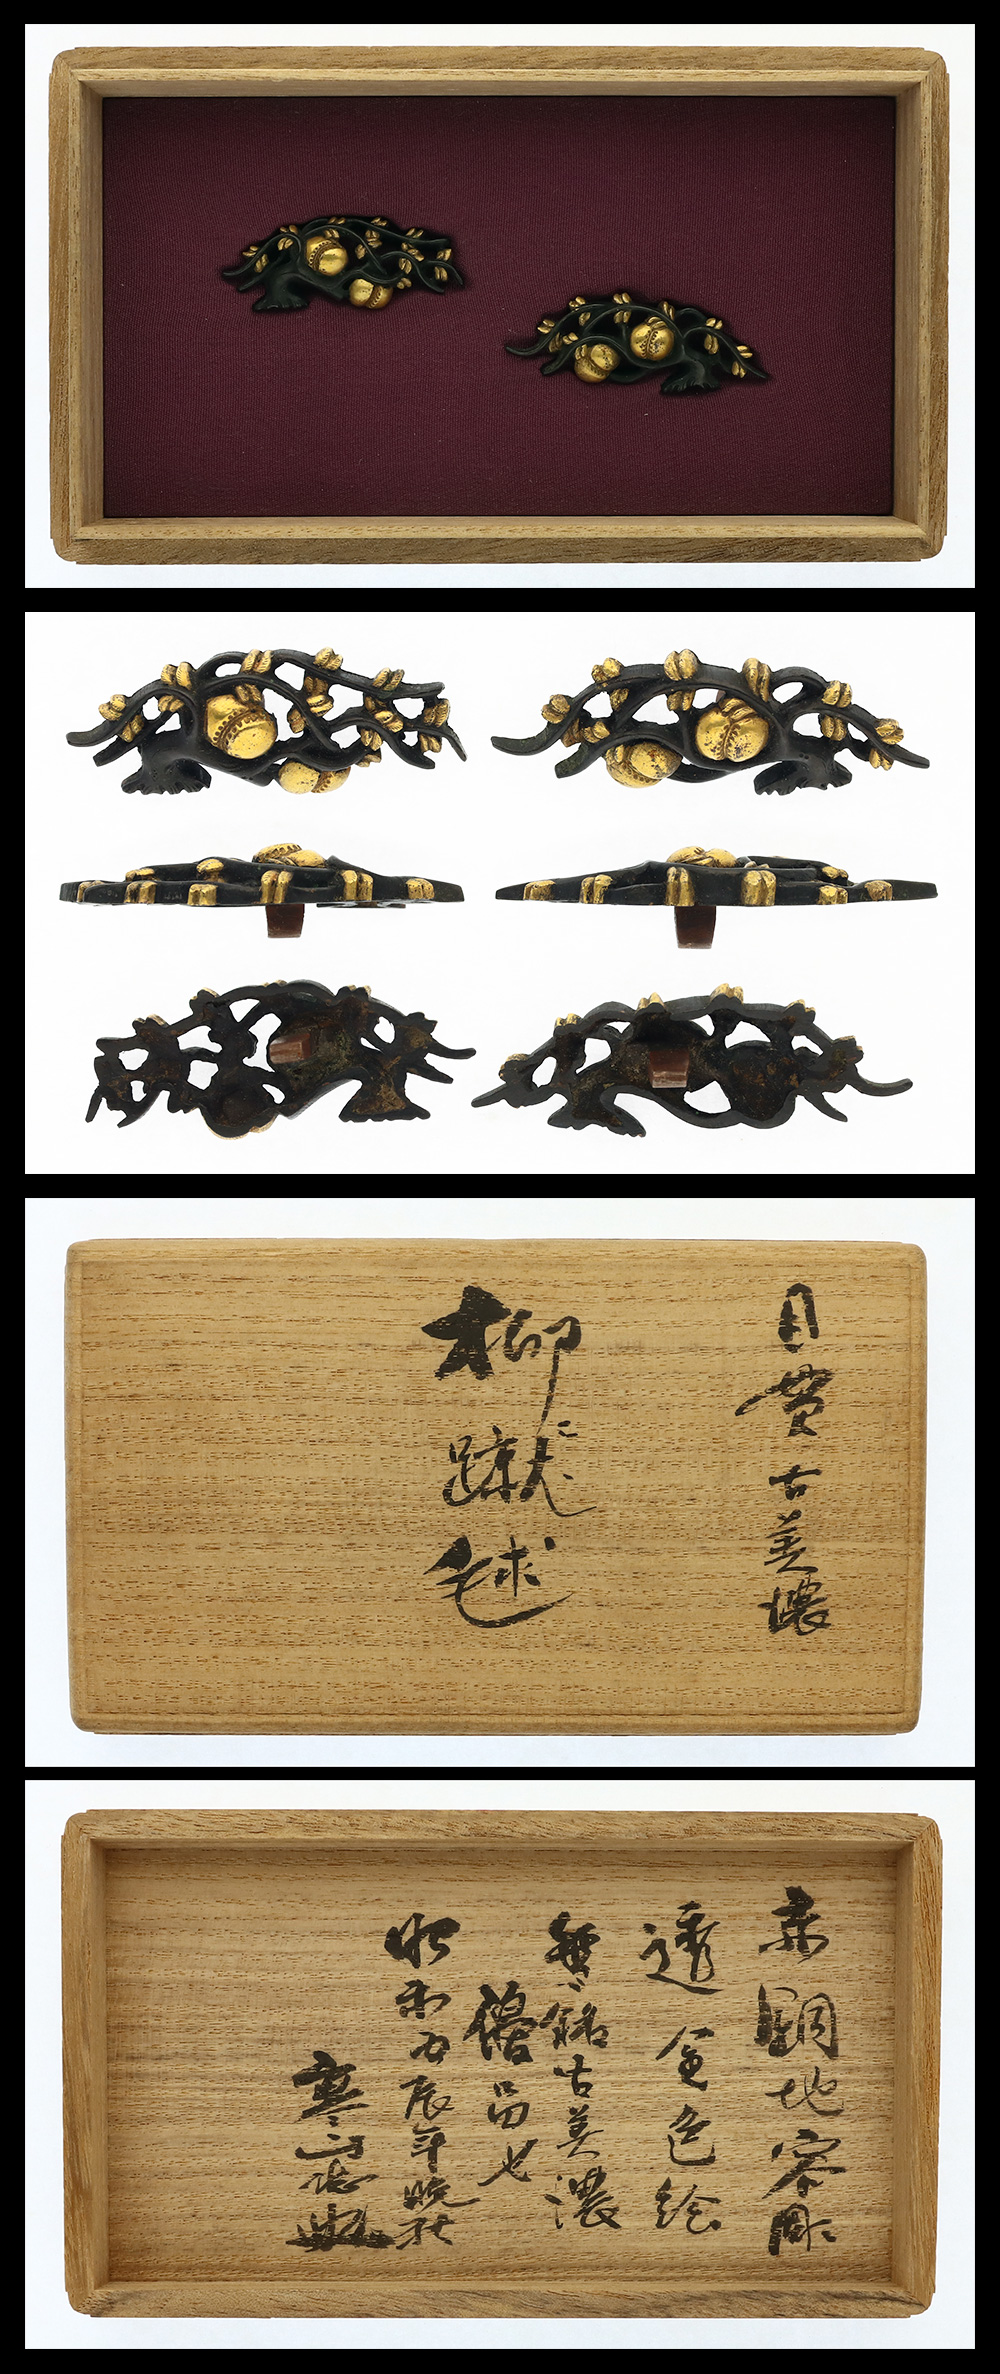 目貫古美濃
柳ニ蹴毬
赤銅地容彫
透金色絵
無銘古美濃
優品也
昭和丙辰年晩秋
寒山誌